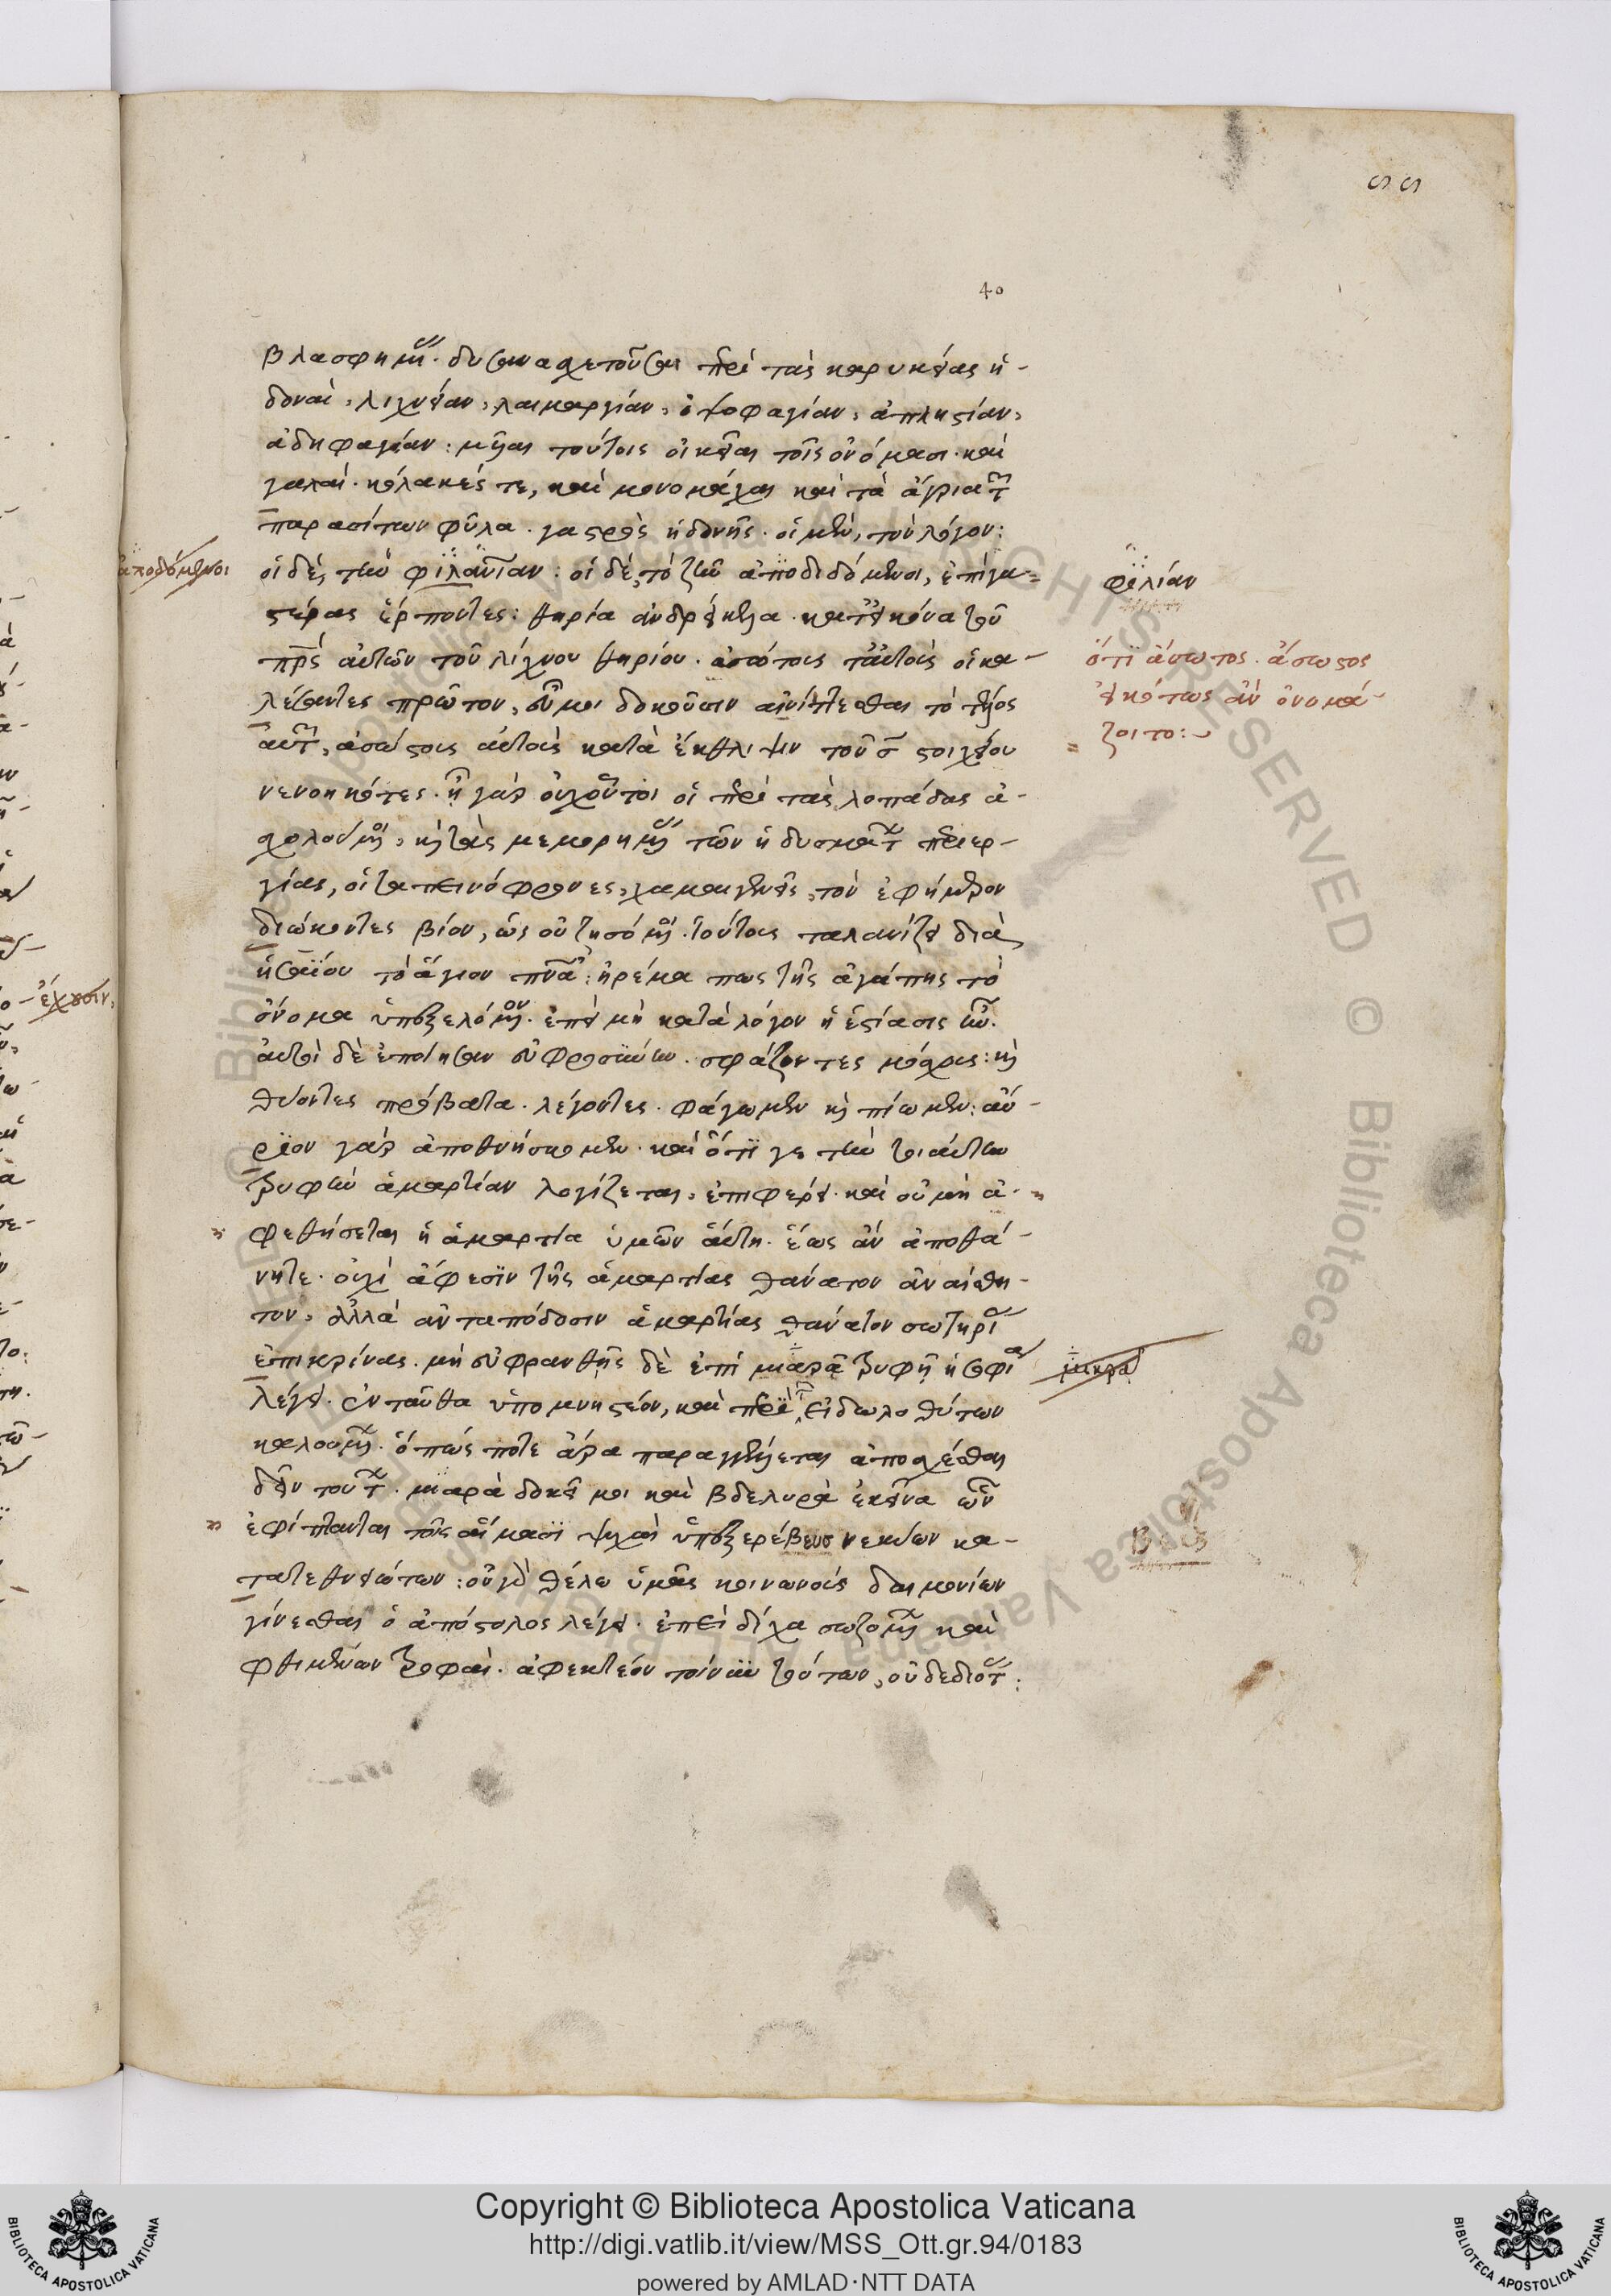 ςς
40
βλασφημ(ίας). δυσανασχετοῦσαι περὶ τὰς καρυκείας ἡ-
δοναί, λιχνείαν, λαιμαργίαν, ὀψοφαγίαν, ἀπληστίαν,
ἀδηφαγίαν: μυῖαι τούτοις οἰκεῖαι τοῖς ὀνόμασι. καὶ
γαλαῖ. κόλακές τε, καὶ μονομάχοι καὶ τὰ ἄγρια τῶν
παρασίτων φῦλα. γαστρὸς ἡδονῆς. οἱ μὲν, τὸν λόγον:
οἱ δὲ, τὴν φιλαυτίαν: οἱ δὲ, τὸ ζῆν ἀποδιδόμενοι, ἐπὶ γα-
στέρας ἕρποντες: θηρία ἀνδρείκελα. κατ' εἰκόνα τοῦ
πατρὸς αὐτῶν τοῦ λίχνου θηρίου. ἀσώτους τε αὐτοὺς οἱ κα-
λέσαντες πρῶτον, εὖ μοι δοκοῦσιν αἰνίττεσθαι τὸ τέλος
αὐτῶν, ἀσώστους αὐτοὺς κατὰ ἔκθλιψιν τοῦ σ στοιχείου
νενοηκότες. ἢ γὰρ οὐχ οὗτοι οἱ περὶ τὰς λοπάδας ἀ-
σχολούμενοι, καὶ τὰς μεμορημένας τῶν ἡδυσμάτων περιερ-
γίας, οἱ ταπεινόφρονες, χαμαιγενεῖς, τὸν ἐφήμερον
διώκοντες βίον, ὡς οὐ ζησόμενοι. τούτους ταλανίζει διὰ
ἡσαΐου τὸ ἅγιον πνᾶ: ἠρέμα πως τῆς ἀγάπης τὸ
ὄνομα ὑπεξελόμενον. ἐπεὶ μὴ κατὰ λόγον ἡ ἑστίασις ἦν.
αὐτοὶ δὲ ἐποίησαν εὐφροσύνην. σφάζοντες μόσχους: καὶ
θύοντες πρόβατα. λέγοντες. φάγωμεν καὶ πίωμεν: αὔ-
ριον γὰρ ἀποθνήσκομεν. καὶ ὅτι γε τὴν τοιαύτην
τρυφὴν ἁμαρτίαν λογίζεται, ἐπιφέρει. καὶ οὐ μὴ ἀ-
φεθήσεται ἡ ἁμαρτία ὑμῶν αὕτη. ἕως ἂν ἀποθά-
νητε. οὐχὶ ἄφεσιν τῆς ἁμαρτίας θάνατον ἀναίσθη-
τον, ἀλλὰ ἀνταπόδοσιν ἁμαρτίας θάνατον σωτηρίας
ἐπικρίνας. μὴ εὐφρανθῇς δὲ ἐπὶ μιαρᾷ τρυφῇ ἡ σοφία
λέγει. ἐνταῦθα ὑπομνηστέον, καὶ περὶ τῶν εἰδωλοθύτων
καλουμένων. ὅπως ποτε ἄρα παραγγέλλεται ἀποσχέσθαι
δεῖν τούτων. μιαρὰ δοκεῖ μοι καὶ βδελυρὰ ἐκεῖνα ὧν
ἐφίπτανται τοῖς αἵμασι ψυχαὶ ὑπεξ ερέβευσ νεκύων κα-
τατεθνειώτων: οὐ γὰρ θέλω ὑμᾶς κοινωνοὺς δαιμονίων
γίνεσθαι ὁ ἀπόστολος λέγει. ἐπεὶ δίχα σωζομένων καὶ
φθιμένων τροφαί. ἀφεκτέον τοίνυν τούτων, οὐ δεδιότας:
ἀποδόμενοι
φιλίαν
ὅτι ἄσωτος. ἄσωστος
εἰκότως ἂν ὀνομά-
ζοιτο:
μικρᾷ
Copyright © Biblioteca Apostolica Vaticana
http://digi.vatlib.it/view/MSS_Ott.gr.94/0183
powered by AMLAD·NTT DATA